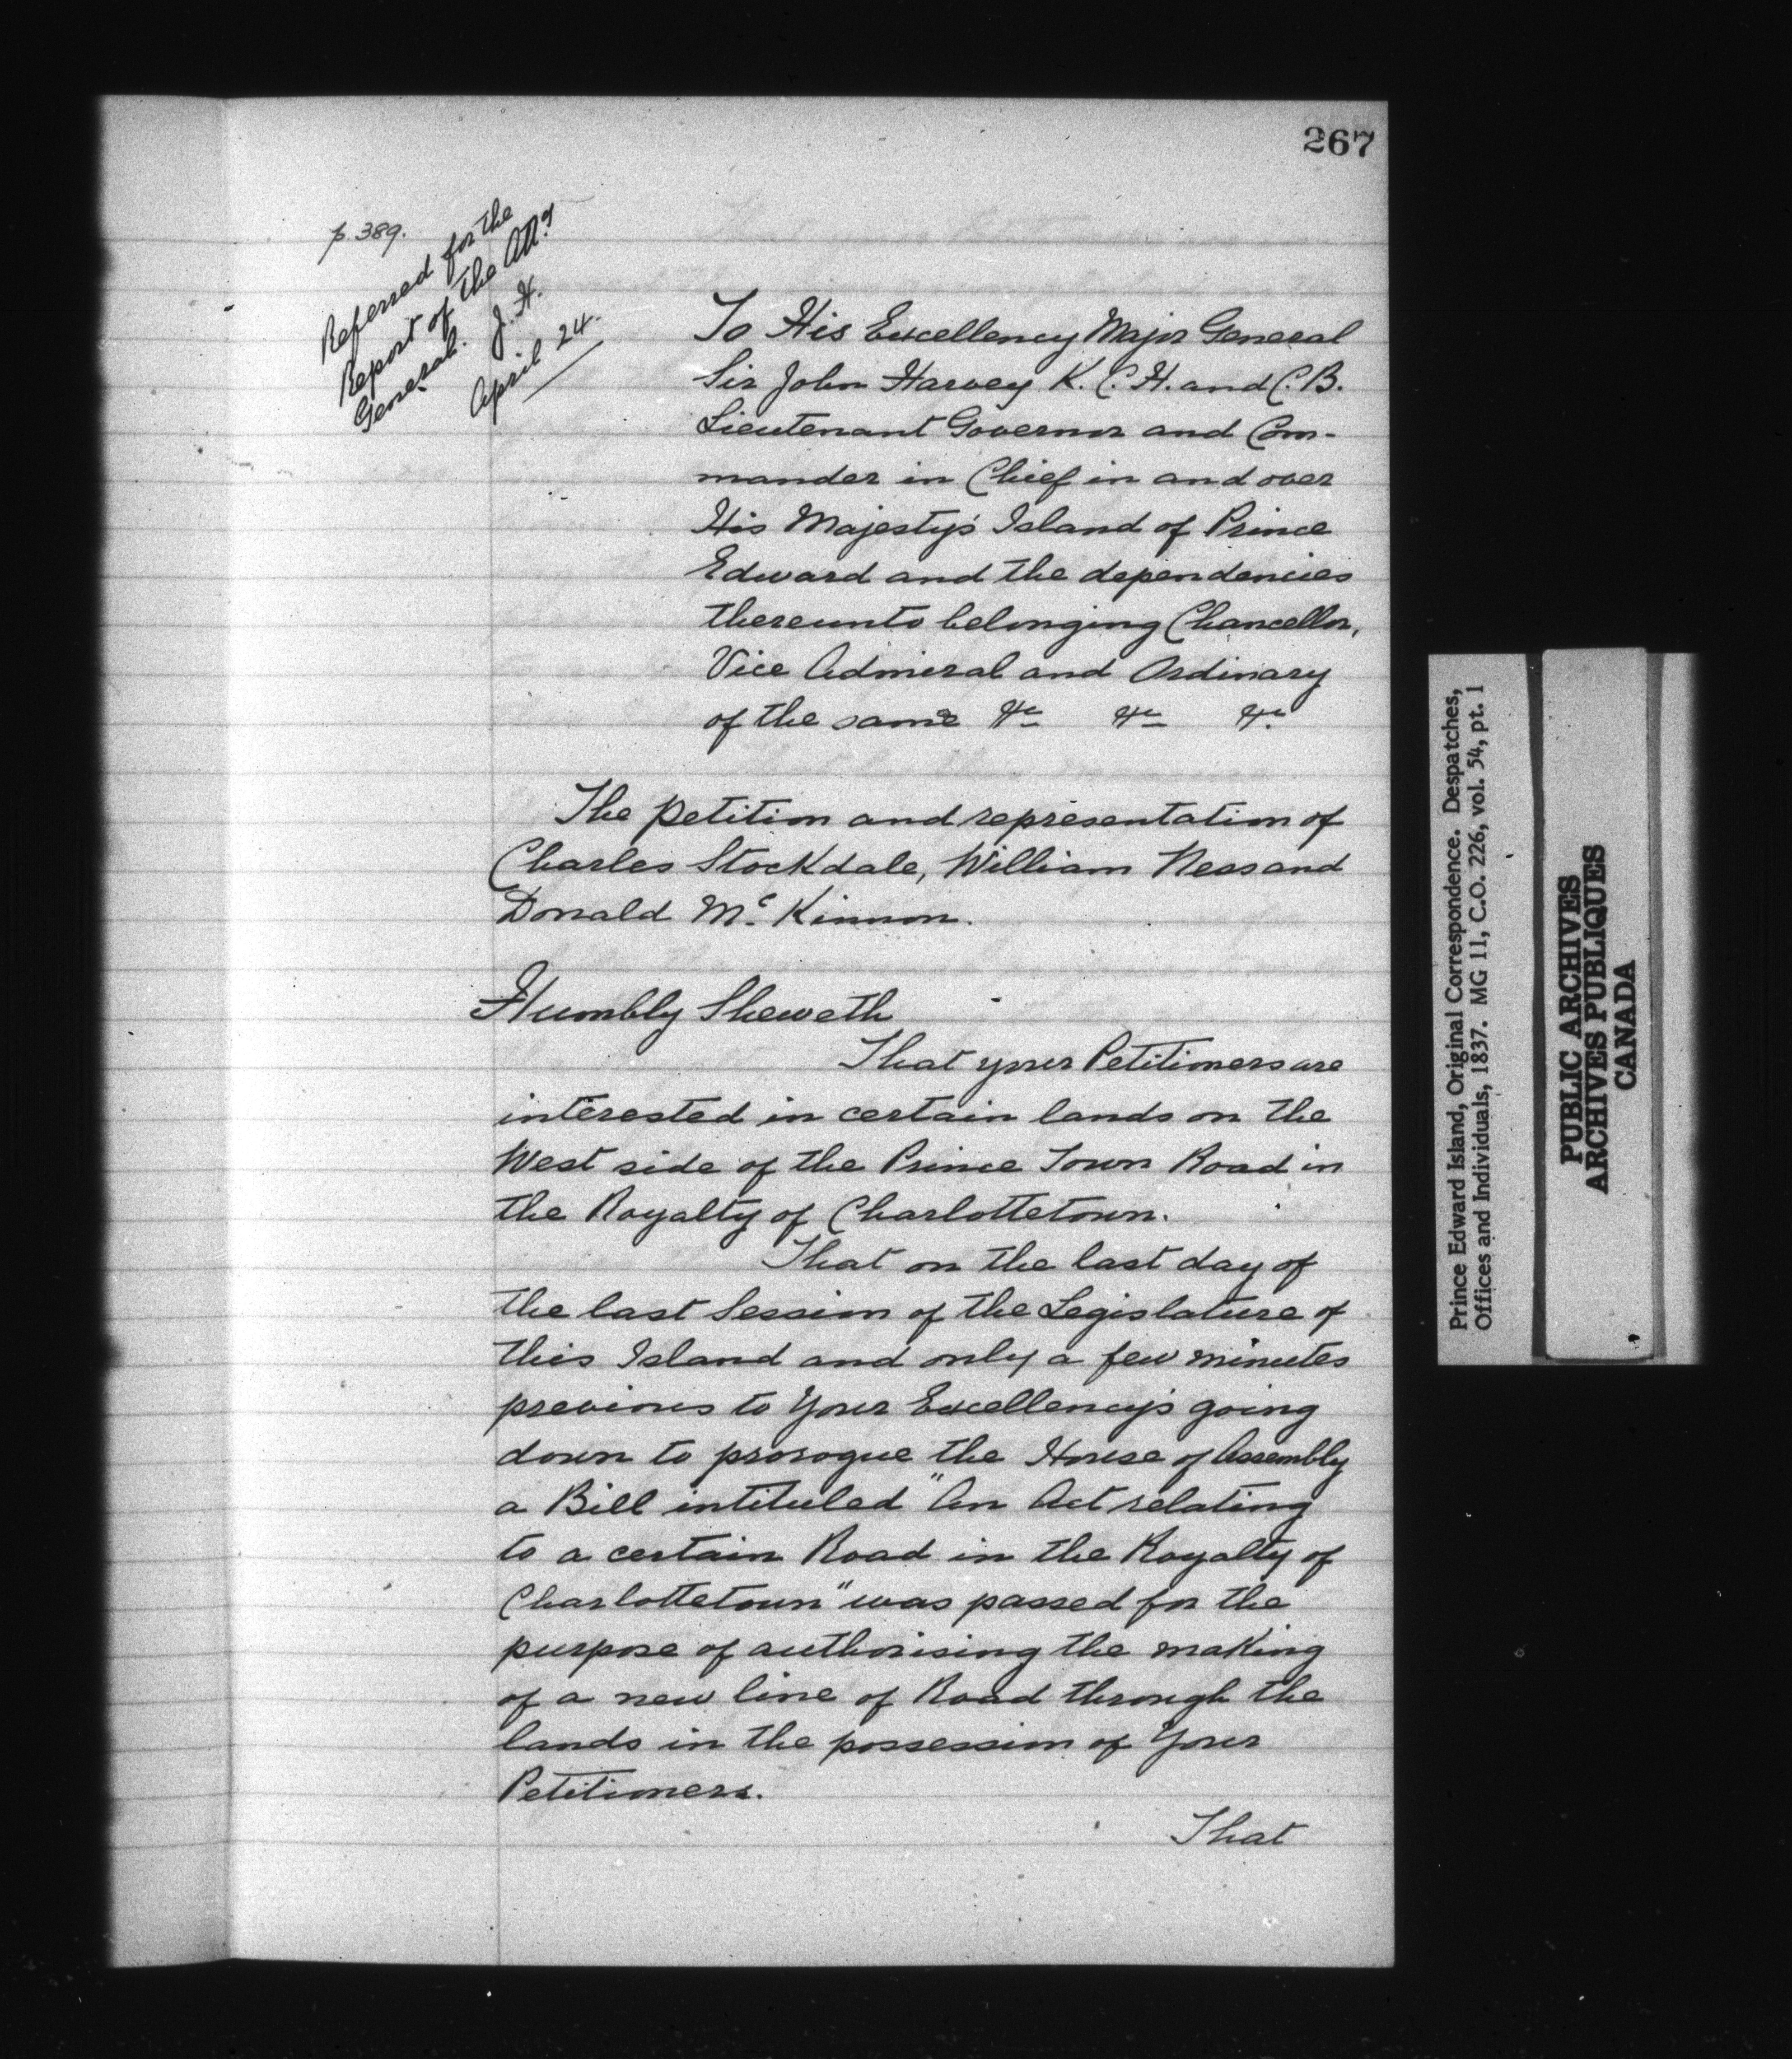 267
p 389.
Referred for the
Report of the Att.y
General. J. H.
April 24.
To His Excellency Major General
Sir John Harvey K. C. H. and C. B.
Lieutenant Governor and Com-
mander in Chief in and over
His Majesty's Island of Prince
Edward and the dependencies
thereunto belonging Chancellor,
Vice Admiral and Ordinary
of the same &c &c &c.
The petition and representation of
Charles Stockdale, William Ness and
Donald Mc. Kinnon.
Humbly Sheweth
That your Petitioners are
interested in certain lands on the
West side of the Prince Town Road in
the Royalty of Charlottetown.
That on the last day of
the last Session of the Legislature of
this Island and only a few minutes
previous to Your Excellency's going
down to prorogue the House of Assembly
a Bill intituled "An Act relating
to a certain Road in the Royalty of
Charlottetown" was passed for the
purpose of authorising the making
of a new line of Road through the
lands in the possession of Your
Petitioners.
That
Prince Edward Island, Original Correspondence. Despatches,
Offices and Individuals, 1837. MG 11, C.O. 226, vol. 54, pt. 1
PUBLIC ARCHIVES
ARCHIVES PUBLIQUES
CANADA